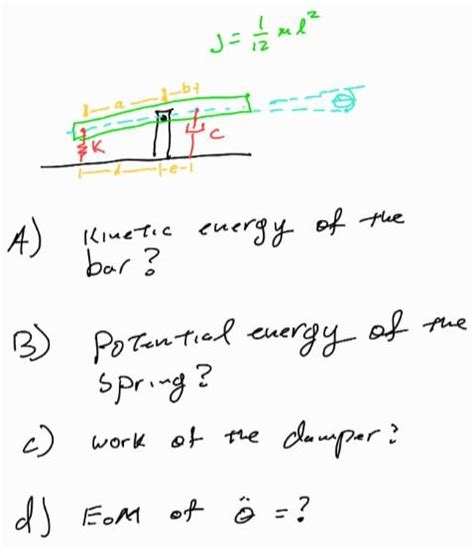 J = 1/12 m l²
a b
θ
K C
d e
A) Kinetic energy of the
bar?
B) Potential energy of the
spring?
c) work of the damper?
d) EoM of θ̈ = ?